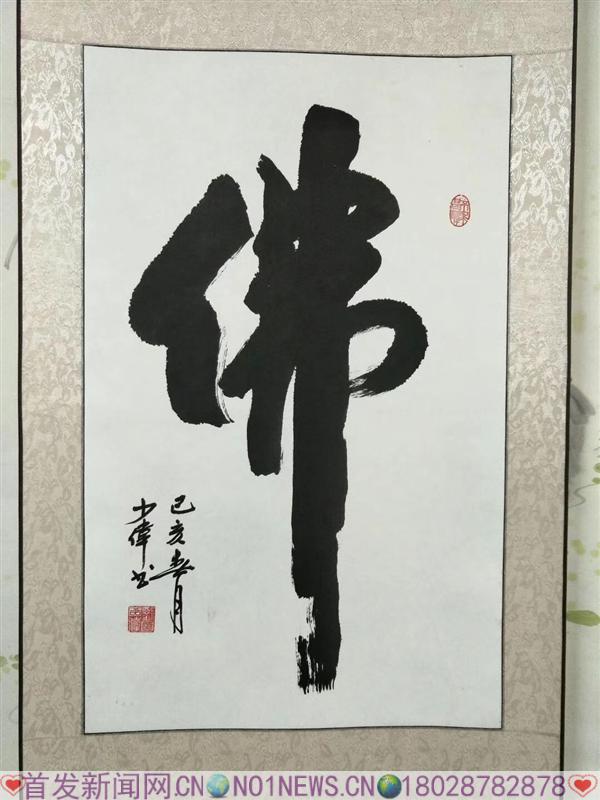 佛
己亥春月
少偉书
首发新闻网.CN NO1NEWS.CN 18028782878